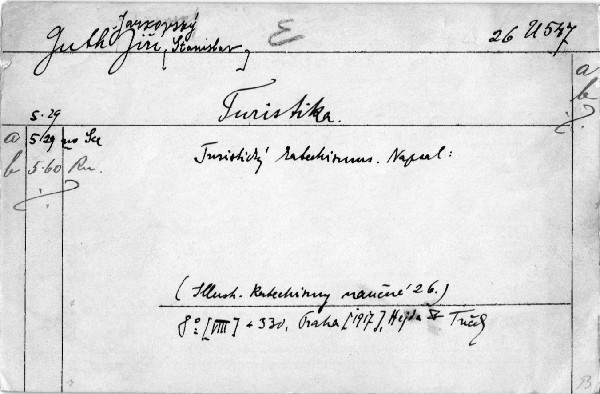 Guth-Jarkovský
Jiří [Stanislav]
26 U 547
a
b
Turistika.
5.29
a 5/29
b 5.60 Ru.
Turistický katechismus. Napsal:
(Illustr. Katechismy naučné 26.)
8° [VIII] + 330, Praha [1917], Hejda & Tuček